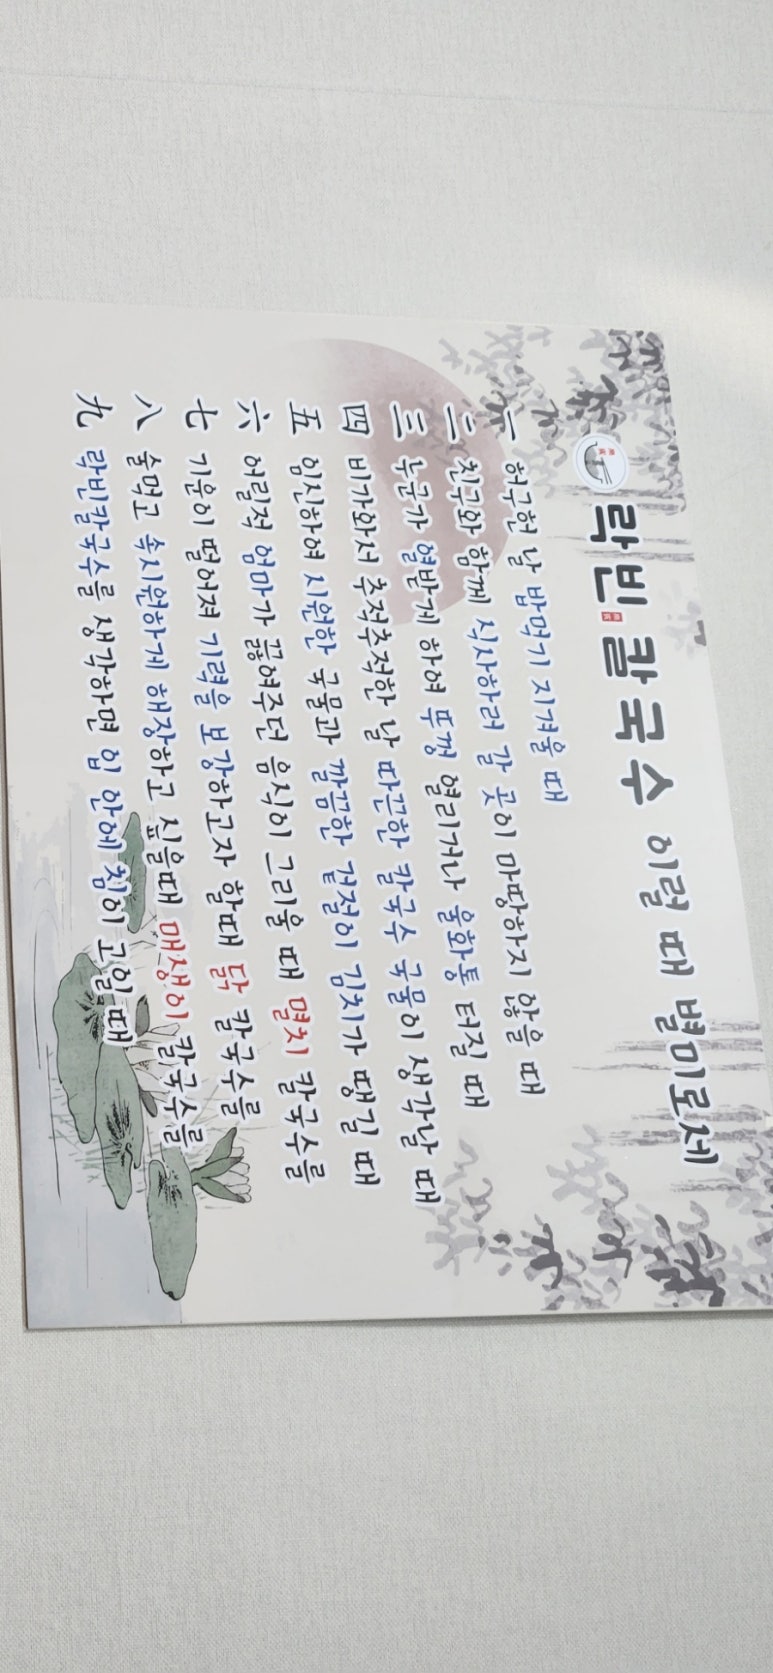 락빈칼국수 이럴 때 별미로세
一 허구헌 날 밥먹기 지겨울 때
二 친구와 함께 식사하러 갈 곳이 마땅하지 않을 때
三 누군가 열받게 하여 뚜껑 열리거나 울화통 터질 때
四 비가와서 추적추적한 날 따끈한 칼국수 국물이 생각날 때
五 임신하여 시원한 국물과 깔끔한 겉절이 김치가 땡길 때
六 어릴적 엄마가 끓여주던 음식이 그리울 때 멸치 칼국수를
七 기운이 떨어져 기력을 보강하고자 할때 닭 칼국수를
八 술먹고 속시원하게 해장하고 싶을때 매생이 칼국수를
九 락빈칼국수를 생각하면 입 안에 침이 고일 때